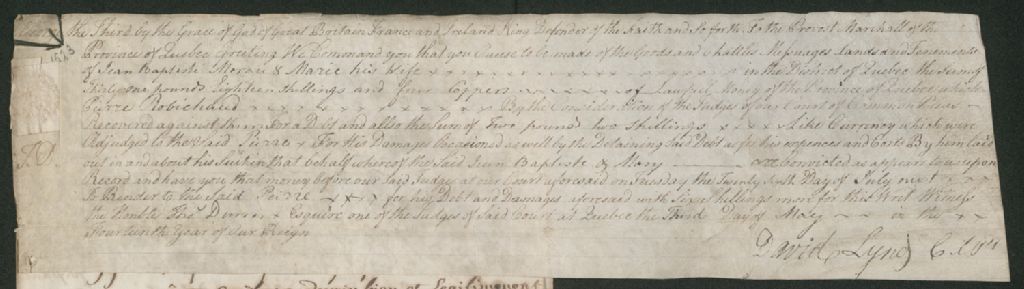 the Third by the Grace of God of Great Britain France and Ireland King Defender of the Faith and so forth To the Provost Marshall of the
Province of Quebec Greeting We Command you that you Cause to be made of the Goods and Chattles Messuages Lands and Tenements
of Jean Baptiste & Marie his Wife x x x x x x x x x x x x x x x in the District of Quebec the Sum of
Sixty one pounds Eighteen Shillings and four Coppers of Lawfull Money of the Province of Quebec which
Pierre Robichaud x x x x x x x x x x x x x By the Consideration of the Judges of our Court of Common Pleas
Recovered against them for a Debt and also the Sum of Two pounds two Shillings x x x x Like Currency which were
Adjudged to the Said Pierre x For his Damages Occasioned as well by the Detaining Said Debt as for his expences and Costs By him laid
out in and about his Suit in that behalf whereof the Said Jean Baptiste & Mary are Convicted as appears to us upon
Record and have you that money before our Said Judges at our Court aforesaid on Tuesday the Twenty Day of July next
To Render to the Said Peirre x x x for his Debt and Damages aforesaid with Six Shillings more for this Writ Witness
the Esquire one of the Judges of Said Court at Quebec the Third Day of May in the
Fourteenth Year of Our Reign
David Lynd
J.D.